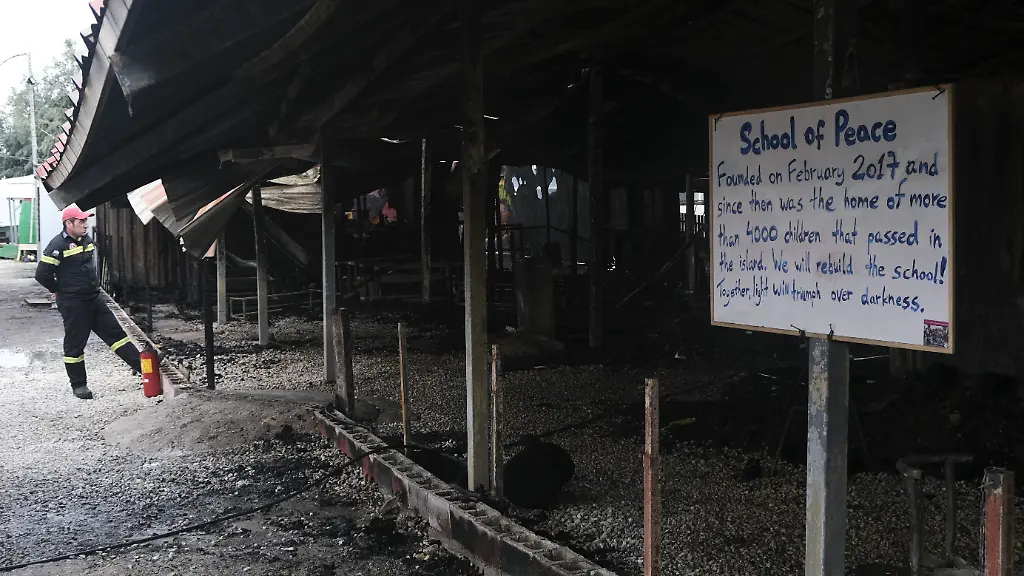 School of Peace
Founded on February 2017 and
since then was the home of more
than 4000 children that passed in
the island. We will rebuild the school!
Together, light will triumph over darkness.